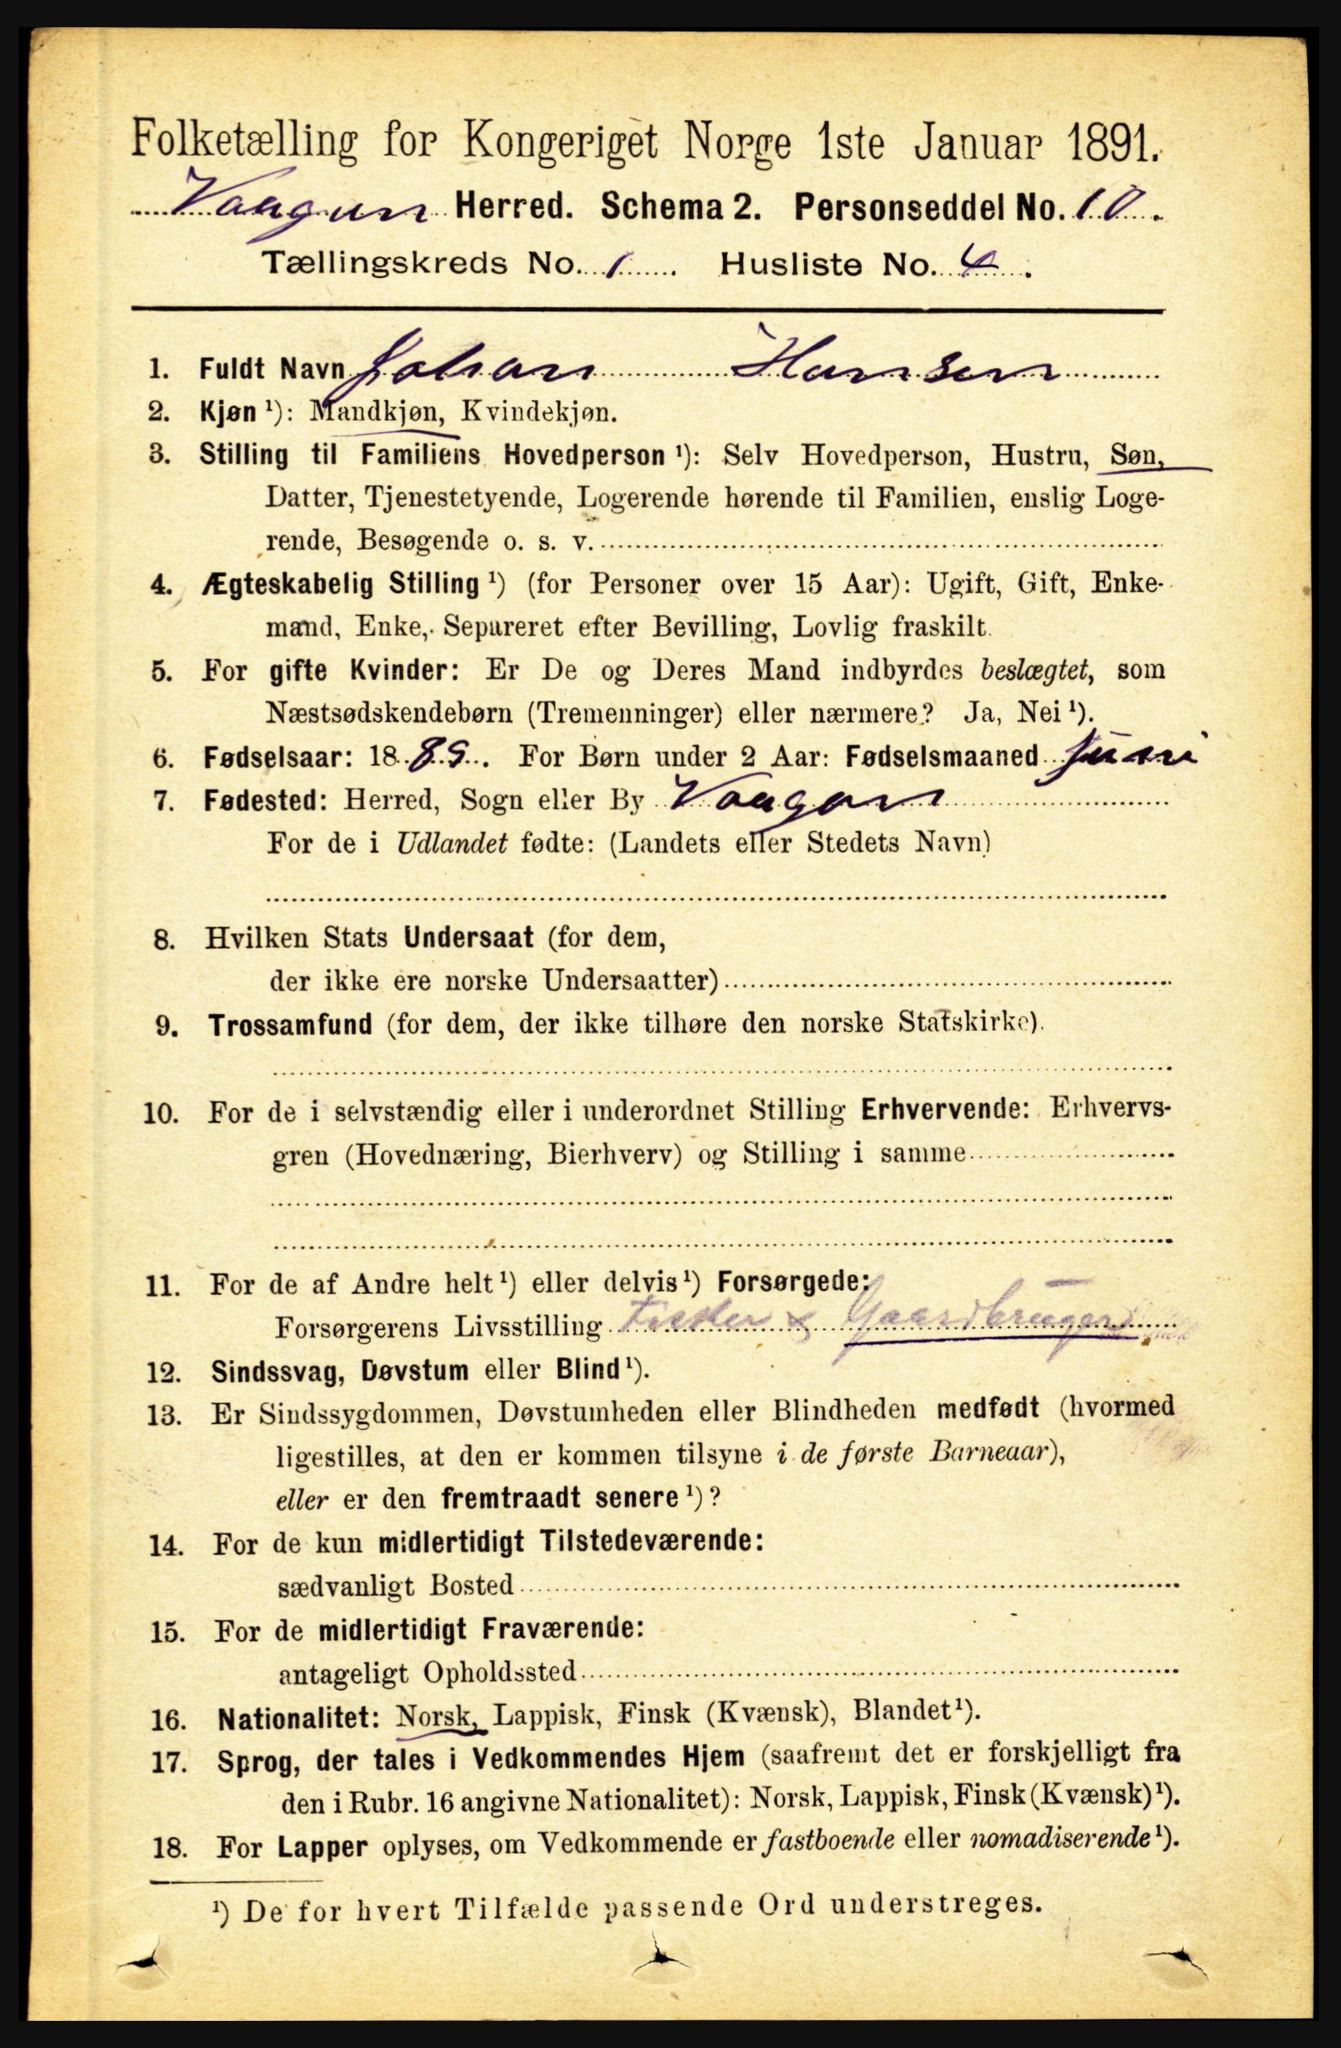 Folketælling for Kongeriget Norge 1ste Januar 1891.
Vaagan Herred. Schema 2. Personseddel No. 10.
Tællingskreds No. 1. Husliste No. 4.
1. Fuldt Navn Johan Hansen
2. Kjøn ¹): Mandkjøn, Kvindekjøn.
3. Stilling til Familiens Hovedperson ¹): Selv Hovedperson, Hustru, Søn,
Datter, Tjenestetyende, Logerende hørende til Familien, enslig Loge-
rende, Besøgende o. s. v.
4. Ægteskabelig Stilling ¹) (for Personer over 15 Aar): Ugift, Gift, Enke-
mand, Enke, Separeret efter Bevilling, Lovlig fraskilt.
5. For gifte Kvinder: Er De og Deres Mand indbyrdes beslægtet, som
Næstsødskendebørn (Tremenninger) eller nærmere? Ja, Nei ¹).
6. Fødselsaar: 1889. For Børn under 2 Aar: Fødselsmaaned juni
7. Fødested: Herred, Sogn eller By Vaagan
For de i Udlandet fødte: (Landets eller Stedets Navn)
8. Hvilken Stats Undersaat (for dem,
der ikke ere norske Undersaatter)
9. Trossamfund (for dem, der ikke tilhøre den norske Statskirke).
10. For de i selvstændig eller i underordnet Stilling Erhvervende: Erhvervs-
gren (Hovednæring, Bierhverv) og Stilling i samme
11. For de af Andre helt ¹) eller delvis ¹) Forsørgede:
Forsørgerens Livsstilling Fisker & Gaardbruger
12. Sindssvag, Døvstum eller Blind ¹).
13. Er Sindssygdommen, Døvstumheden eller Blindheden medfødt (hvormed
ligestilles, at den er kommen tilsyne i de første Barneaar),
eller er den fremtraadt senere ¹)?
14. For de kun midlertidigt Tilstedeværende:
sædvanligt Bosted
15. For de midlertidigt Fraværende:
antageligt Opholdssted
16. Nationalitet: Norsk, Lappisk, Finsk (Kvænsk), Blandet ¹).
17. Sprog, der tales i Vedkommendes Hjem (saafremt det er forskjelligt fra
den i Rubr. 16 angivne Nationalitet): Norsk, Lappisk, Finsk (Kvænsk) ¹).
18. For Lapper oplyses, om Vedkommende er fastboende eller nomadiserende ¹).
¹) De for hvert Tilfælde passende Ord understreges.